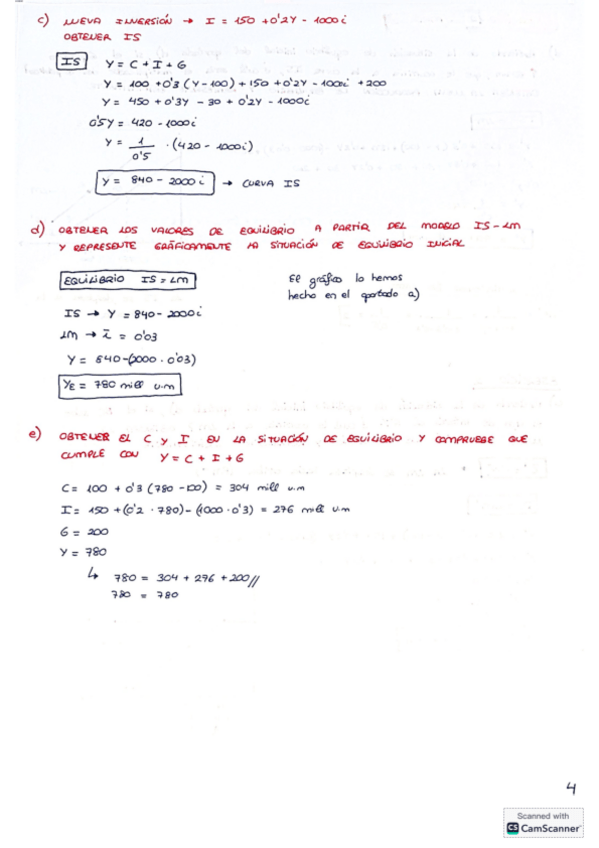 c) NUEVA INVERSIÓN → I = 150 + 0'2Y - 1000i
OBTENER IS
IS Y = C + I + G
Y = 100 + 0'3 (Y - 100) + 150 + 0'2Y - 1000i + 200
Y = 450 + 0'3Y - 30 + 0'2Y - 1000i
0'5Y = 420 - 1000i
Y = 1/0'5 · (420 - 1000i)
Y = 840 - 2000i → CURVA IS
d) OBTENER LOS VALORES DE EQUILIBRIO A PARTIR DEL MODELO IS-LM
Y REPRESENTE GRÁFICAMENTE LA SITUACIÓN DE EQUILIBRIO INICIAL
EQUILIBRIO IS = LM
El gráfico lo hemos
hecho en el apartado a)
IS → Y = 840 - 2000i
LM → i̅ = 0'03
Y = 840-(2000 · 0'03)
YE = 780 mill u.m
e) OBTENER EL C Y I EN LA SITUACIÓN DE EQUILIBRIO Y COMPRUEBE QUE
CUMPLE CON Y = C + I + G
C = 100 + 0'3 (780 - 100) = 304 mill u.m
I = 150 + (0'2 · 780) - (1000 · 0'03) = 276 mill u.m
G = 200
Y = 780
↳ 780 = 304 + 276 + 200//
780 = 780
4
Scanned with
CS CamScanner